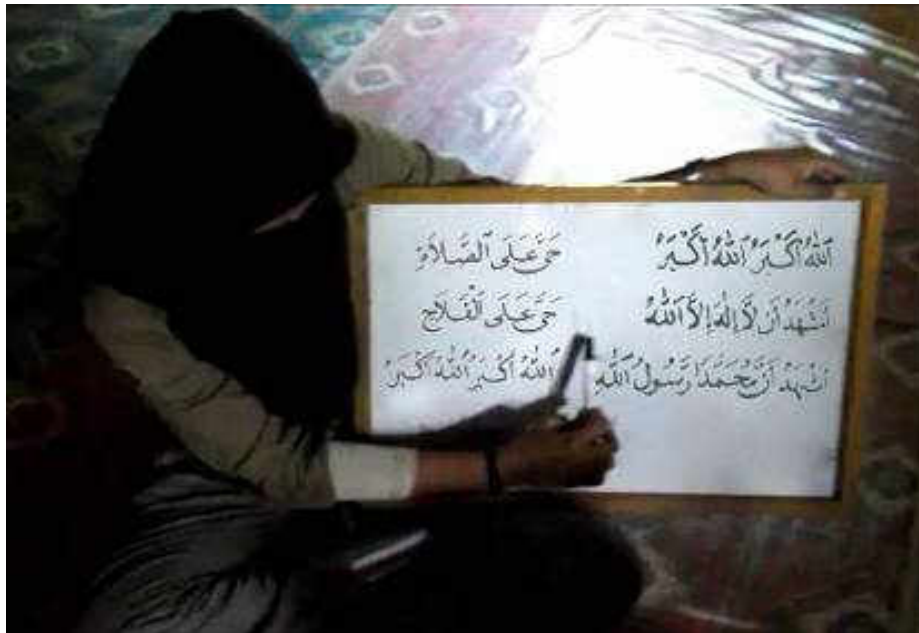 اَللّٰهُ اَكْبَرُ اَللّٰهُ اَكْبَرُ
اَشْهَدُ اَنْ لَّا اِلٰهَ اِلَّا اللّٰهُ
اَشْهَدُ اَنَّ مُحَمَّدًا رَّسُولُ اللّٰهِ
حَىَّ عَلَى الصَّلَاةِ
حَىَّ عَلَى الْفَلَاحِ
اَللّٰهُ اَكْبَرُ اَللّٰهُ اَكْبَرُ